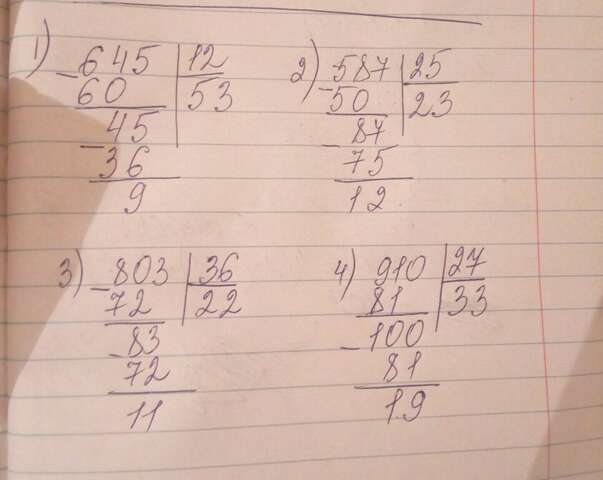 1) 645 | 12
- 60 | 53
45
- 36
9
2) 587 | 25
- 50 | 23
87
- 75
12
3) 803 | 36
- 72 | 22
83
- 72
11
4) 910 | 27
81 | 33
100
- 81
19